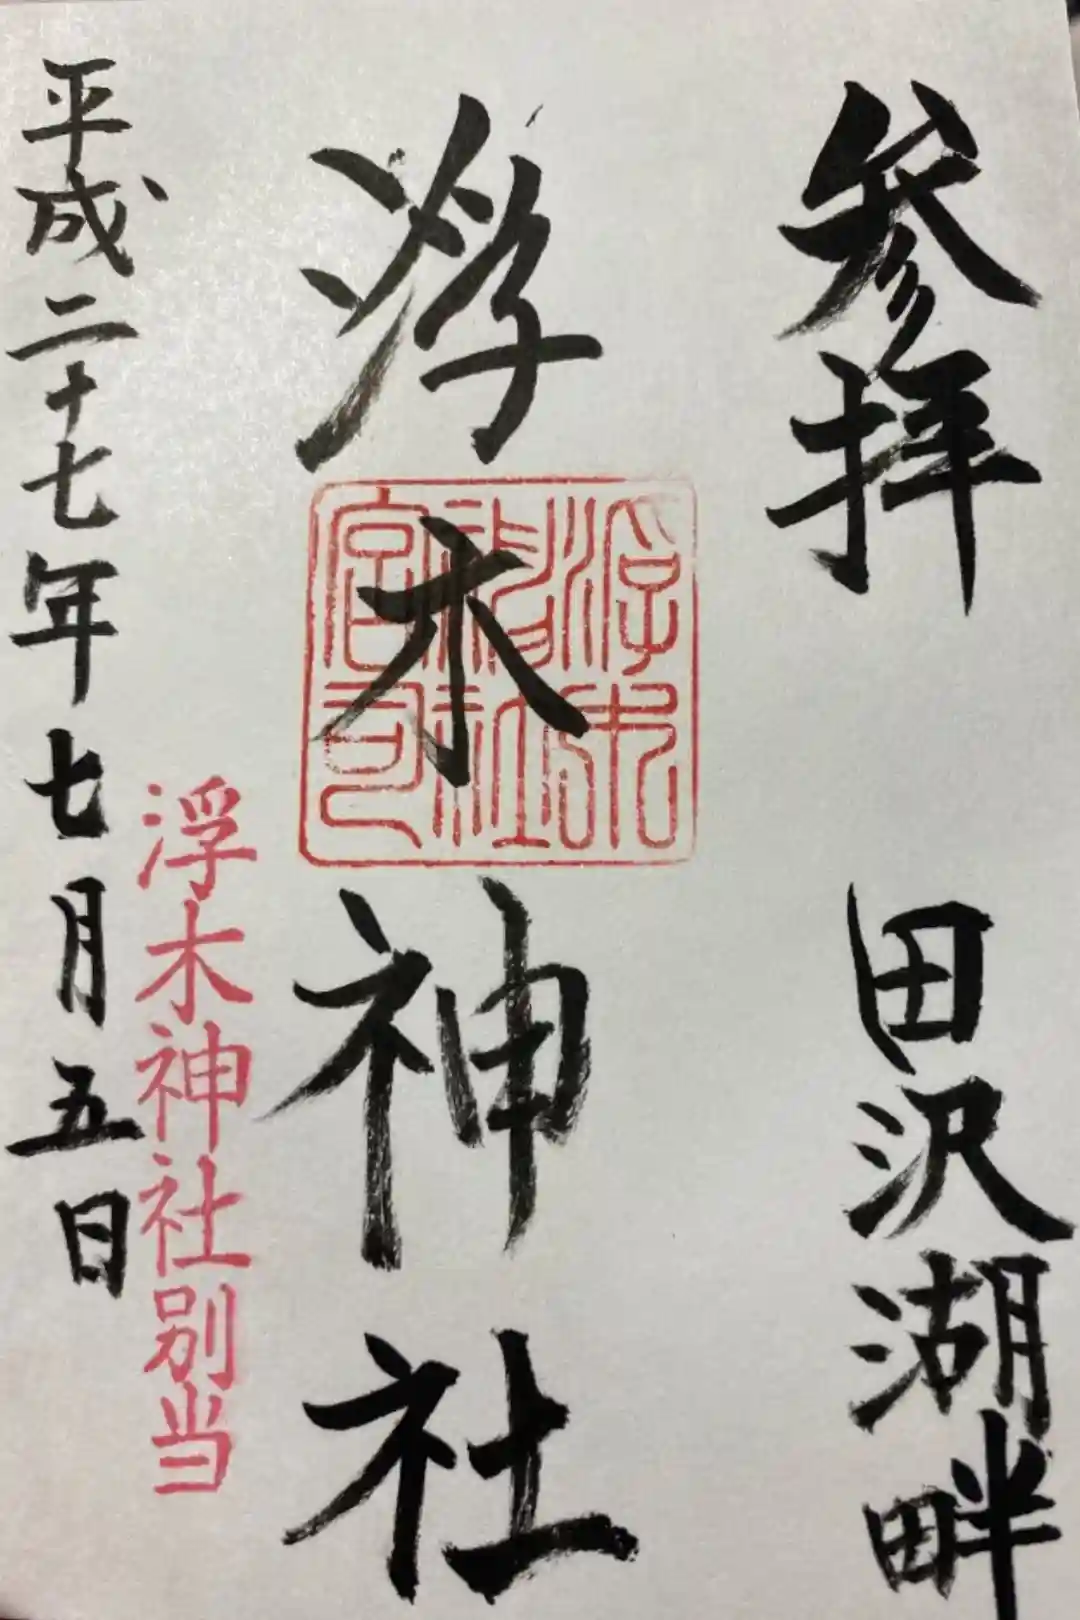 参拝 田沢湖畔
浮木神社
浮木神社宮司
浮木神社別当
平成二十七年七月五日